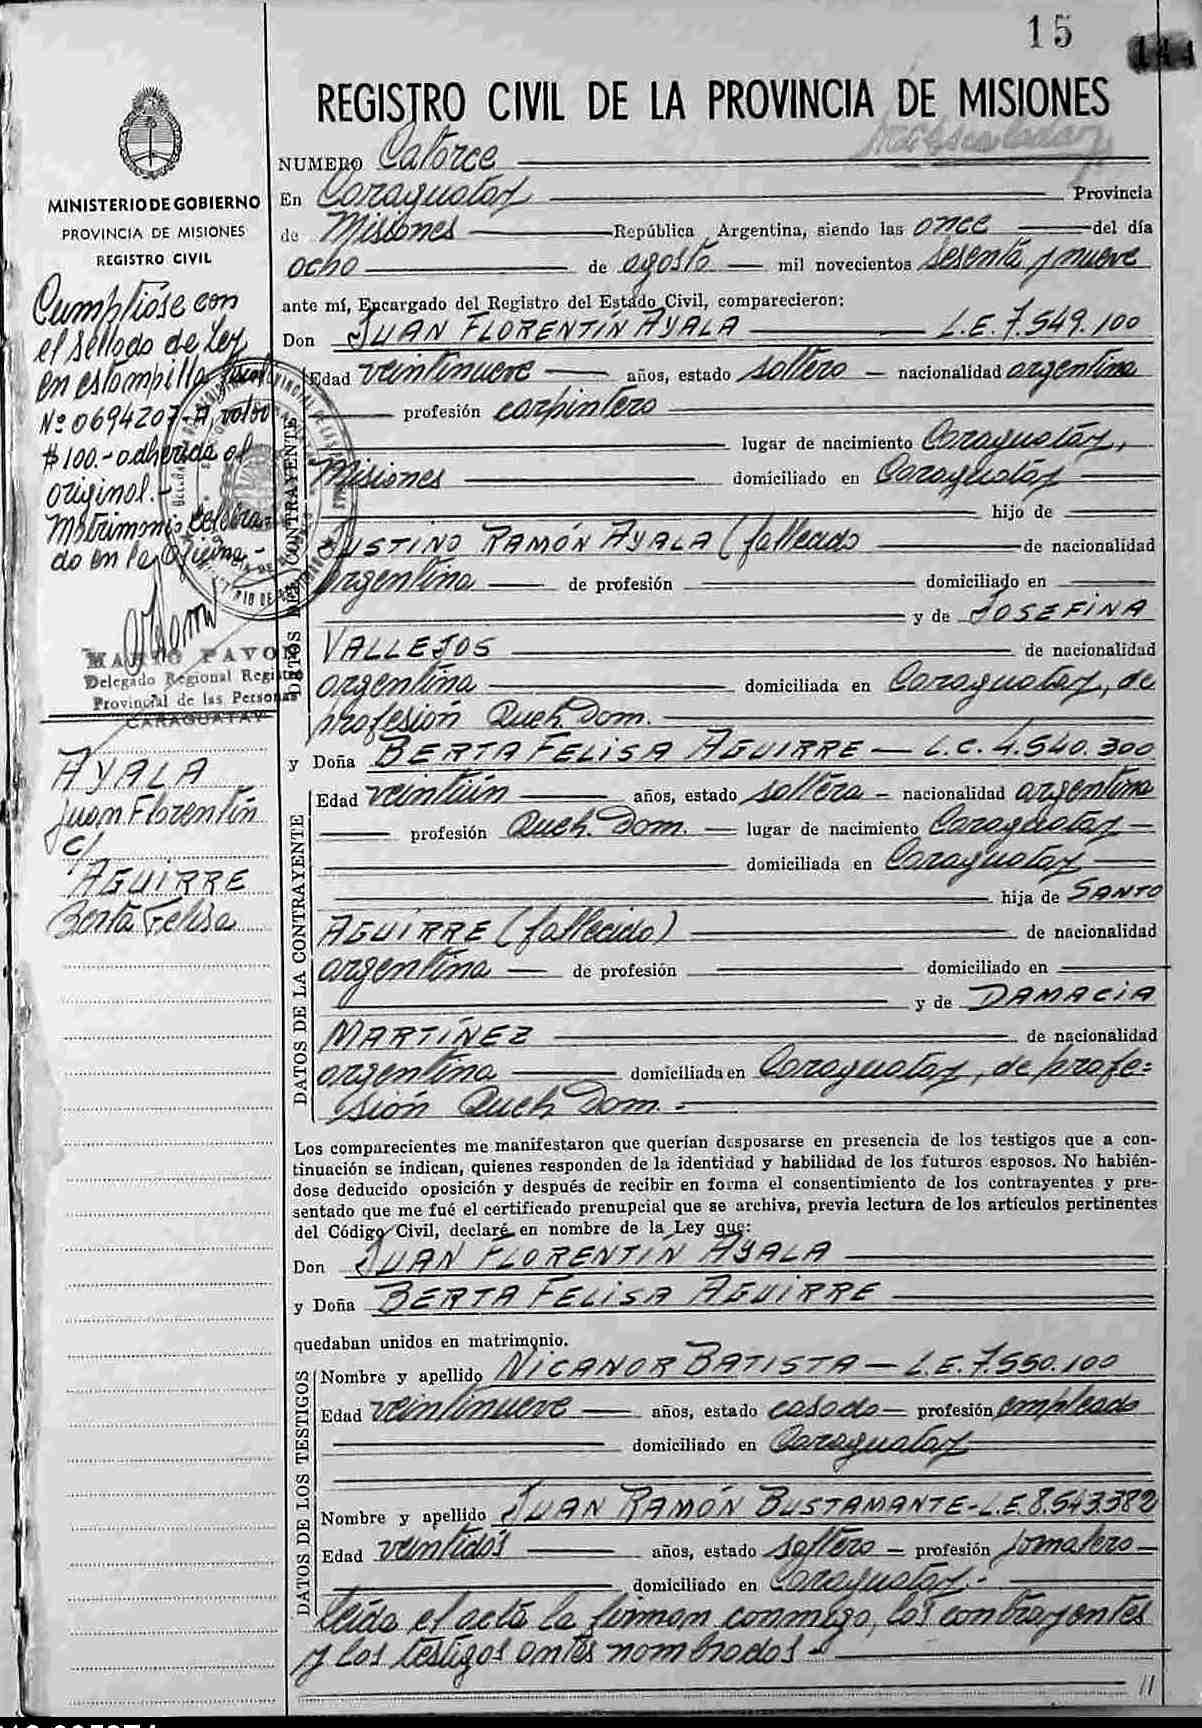 15
REGISTRO CIVIL DE LA PROVINCIA DE MISIONES
NUMERO Catorce
En Caraguatay Provincia
de Misiones República Argentina, siendo las once del día
ocho de agosto mil novecientos sesenta y nueve
ante mí, Encargado del Registro del Estado Civil, comparecieron:
Don JUAN FLORENTÍN AYALA L.E. 7.549.100
DATOS DEL CONTRAYENTE
Edad veintinueve años, estado soltero nacionalidad argentina
profesión carpintero
lugar de nacimiento Caraguatay,
Misiones domiciliado en Caraguatay
hijo de
JUSTINO RAMÓN AYALA (falleado de nacionalidad
argentina de profesión domiciliado en
y de JOSEFINA
VALLEJOS de nacionalidad
argentina domiciliada en Caraguatay, de
profesión Queh. Dom.
y Doña BERTA FELISA AGUIRRE - L.C. 4.540.300
DATOS DE LA CONTRAYENTE
Edad veintiún años, estado soltera - nacionalidad argentina
profesión Queh. Dom. lugar de nacimiento Caraguatay
domiciliada en Caraguatay
hija de SANTO
AGUIRRE (fallecido) de nacionalidad
argentina de profesión domiciliado en
y de DAMACIA
MARTÍNEZ de nacionalidad
argentina domiciliada en Caraguatay, de profe=
sión Queh. Dom.
Los comparecientes me manifestaron que querían desposarse en presencia de los testigos que a con-
tinuación se indican, quienes responden de la identidad y habilidad de los futuros esposos. No habién-
dose deducido oposición y después de recibir en forma el consentimiento de los contrayentes y pre-
sentado que me fué el certificado prenupcial que se archiva, previa lectura de los artículos pertinentes
del Código Civil, declaré en nombre de la Ley que:
Don JUAN FLORENTÍN AYALA
y Doña BERTA FELISA AGUIRRE
quedaban unidos en matrimonio.
DATOS DE LOS TESTIGOS
Nombre y apellido NICANOR BATISTA - L.E. 7.550.100
Edad veintinueve años, estado casado profesión empleado
domiciliado en Caraguatay
Nombre y apellido JUAN RAMÓN BUSTAMANTE - L.E. 8.543.382
Edad veintidós años, estado soltero - profesión jornalero
domiciliado en Caraguatay.
Leída el acta la firman conmigo, los contrayentes
y los testigos antes nombrados
//
MINISTERIO DE GOBIERNO
PROVINCIA DE MISIONES
REGISTRO CIVIL
Cumplióse con
el sellado de Ley
en estampilla
Nº 0694207-A, valor
$100.- adherida al
original.-
Matrimonio celebra-
do en la oficina.-
MARIO PAVON
Delegado Regional Registro
Provincial de las Personas
CARAGUATAY
AYALA
Juan Florentín
c/
AGUIRRE
Berta Felisa